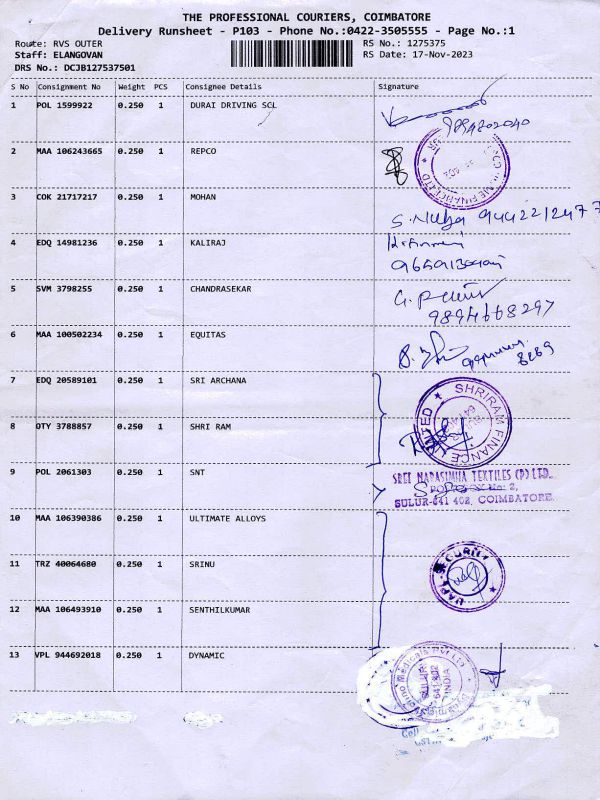 THE PROFESSIONAL COURIERS, COIMBATORE
Delivery Runsheet - P103 - Phone No.:0422-3505555 - Page No.:1
Route: RVS OUTER
RS No.: 1275375
Staff: ELANGOVAN
RS Date: 17-Nov-2023
DRS No.: DCJB127537501
S No Consignment No Weight PCS Consignee Details Signature
1 POL 1599922 0.250 1 DURAI DRIVING SCL
9894202040
2 MAA 106243665 0.250 1 REPCO
3 COK 21717217 0.250 1 MOHAN
9442212477
4 EDQ 14981236 0.250 1 KALIRAJ
5 SVM 3798255 0.250 1 CHANDRASEKAR
9894668297
6 MAA 100502234 0.250 1 EQUITAS
8269
7 EDQ 20589101 0.250 1 SRI ARCHANA
SHRIRAM FINANCE LIMITED
8 OTY 3788857 0.250 1 SHRI RAM
9 POL 2061303 0.250 1 SNT
SREE NARASIMHA TEXTILES (P) LTD.,
No: 2,
SULUR-641 402, COIMBATORE.
10 MAA 106390386 0.250 1 ULTIMATE ALLOYS
11 TRZ 40064680 0.250 1 SRINU
UAPL-SECURITY
12 MAA 106493910 0.250 1 SENTHILKUMAR
13 VPL 944692018 0.250 1 DYNAMIC
SULUR
INDIA